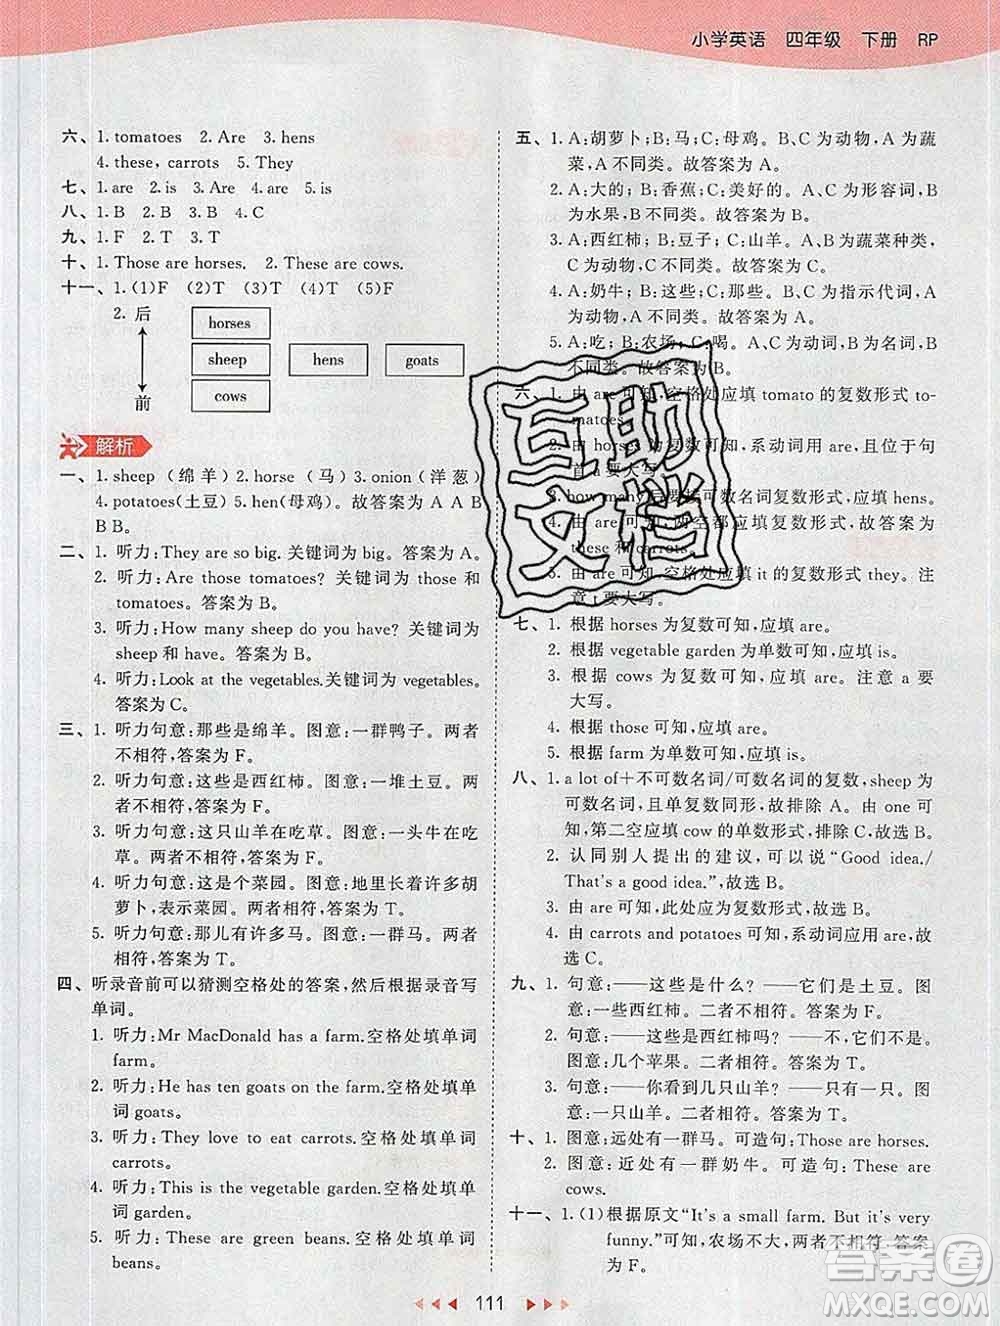 小学英语 四年级 下册 RP
六、1. tomatoes 2. Are 3. hens
4. these, carrots 5. They
七、1. are 2. is 3. Are 4. are 5. is
八、1. B 2. B 3. B 4. C
九、1. F 2. T 3. T
十、1. Those are horses. 2. These are cows.
十一、1. (1)F (2)T (3)T (4)T (5)F
2. 后
horses
sheep hens goats
cows
前
解析
一、1. sheep (绵羊) 2. horse (马) 3. onion (洋葱)
4. potatoes(土豆) 5. hen(母鸡)。故答案为 A A B
B B。
二、1. 听力:They are so big. 关键词为 big。答案为 A。
2. 听力:Are those tomatoes? 关键词为 those 和
tomatoes。答案为 B。
3. 听力:How many sheep do you have? 关键词为
sheep 和 have。答案为 B。
4. 听力:Look at the vegetables.关键词为 vegetables。
答案为 C。
三、1. 听力句意:那些是绵羊。图意:一群鸭子。两者
不相符,答案为 F。
2. 听力句意:这些是西红柿。图意:一堆土豆。两
者不相符,答案为 F。
3. 听力句意:这只山羊在吃草。图意:一头牛在吃
草。两者不相符,答案为 F。
4. 听力句意:这是个菜园。图意:地里长着许多胡
萝卜,表示菜园。两者相符,答案为 T。
5. 听力句意:那儿有许多马。图意:一群马。两者
相符,答案为 T。
四、听录音前可以猜测空格处的答案,然后根据录音写
单词。
1. 听力:Mr MacDonald has a farm.空格处填单词
farm。
2. 听力:He has ten goats on the farm.空格处填单
词 goats。
3. 听力:They love to eat carrots.空格处填单词
carrots。
4. 听力:This is the vegetable garden.空格处填单
词 garden。
5. 听力:These are green beans.空格处填单词
beans。
五、1. A:胡萝卜;B:马;C:母鸡。B、C 为动物,A 为蔬
菜,A 不同类。故答案为 A。
2. A:大的;B:香蕉;C:美好的。A、C 为形容词,B
为水果,B 不同类。故答案为 B。
3. A:西红柿;B:豆子;C:山羊。A、B 为蔬菜种类,
C 为动物,C 不同类。故答案为 C。
4. A:奶牛;B:这些;C:那些。B、C 为指示代词,A
为动物,A 不同类。故答案为 A。
5. A:吃;B:农场;C:喝。A、C 为动词,B 为名词,B
不同类。故答案为 B。
六、1. 由 are 可知,空格处应填 tomato 的复数形式 to-
matoes。
2. 由 horses 为复数可知,系动词用 are,且位于句
首,a 要大写。
3. how many 后要接可数名词复数形式,应填 hens。
4. 由 are 可知,两空都应填复数形式,故填
these 和 carrots。
5. 由 are 可知,空格处应填 it 的复数形式 they。注
意 t 要大写。
七、1. 根据 horses 为复数可知,应填 are。
2. 根据 vegetable garden 为单数可知,应填 is。
3. 根据 cows 为复数可知,应填 are。注意 a 要
大写。
4. 根据 those 可知,应填 are。
5. 根据 farm 为单数可知,应填 is。
八、1. a lot of+不可数名词/可数名词的复数,sheep 为
可数名词,且单复数同形,故排除 A。由 one 可
知,第二空应填 cow 的单数形式,排除 C。故选 B。
2. 认同别人提出的建议,可以说“Good idea./
That's a good idea.”,故选 B。
3. 由 are 可知,此处应为复数形式,故选 B。
4. 由 carrots and potatoes 可知,系动词应用 are,
故选 C。
九、1. 句意:——这些是什么? ——它们是土豆。图
意:一些西红柿。二者不相符。答案为 F。
2. 句意:——这些是西红柿吗? ——不,它们不是。
图意:几个苹果。二者相符。答案为 T。
3. 句意:——你看到几只山羊? ——只有一只。图
意:一只山羊。二者相符。答案为 T。
十、1. 图意:远处有一群马。可造句:Those are horses.
2. 图意:近处有一群奶牛。可造句:These are
cows.
十一、1. (1)根据原文“It's a small farm. But it's very
funny.”可知,农场不大,两者不相符 答案
为 F。
111
互助
文档
答案圈
MXQE.COM